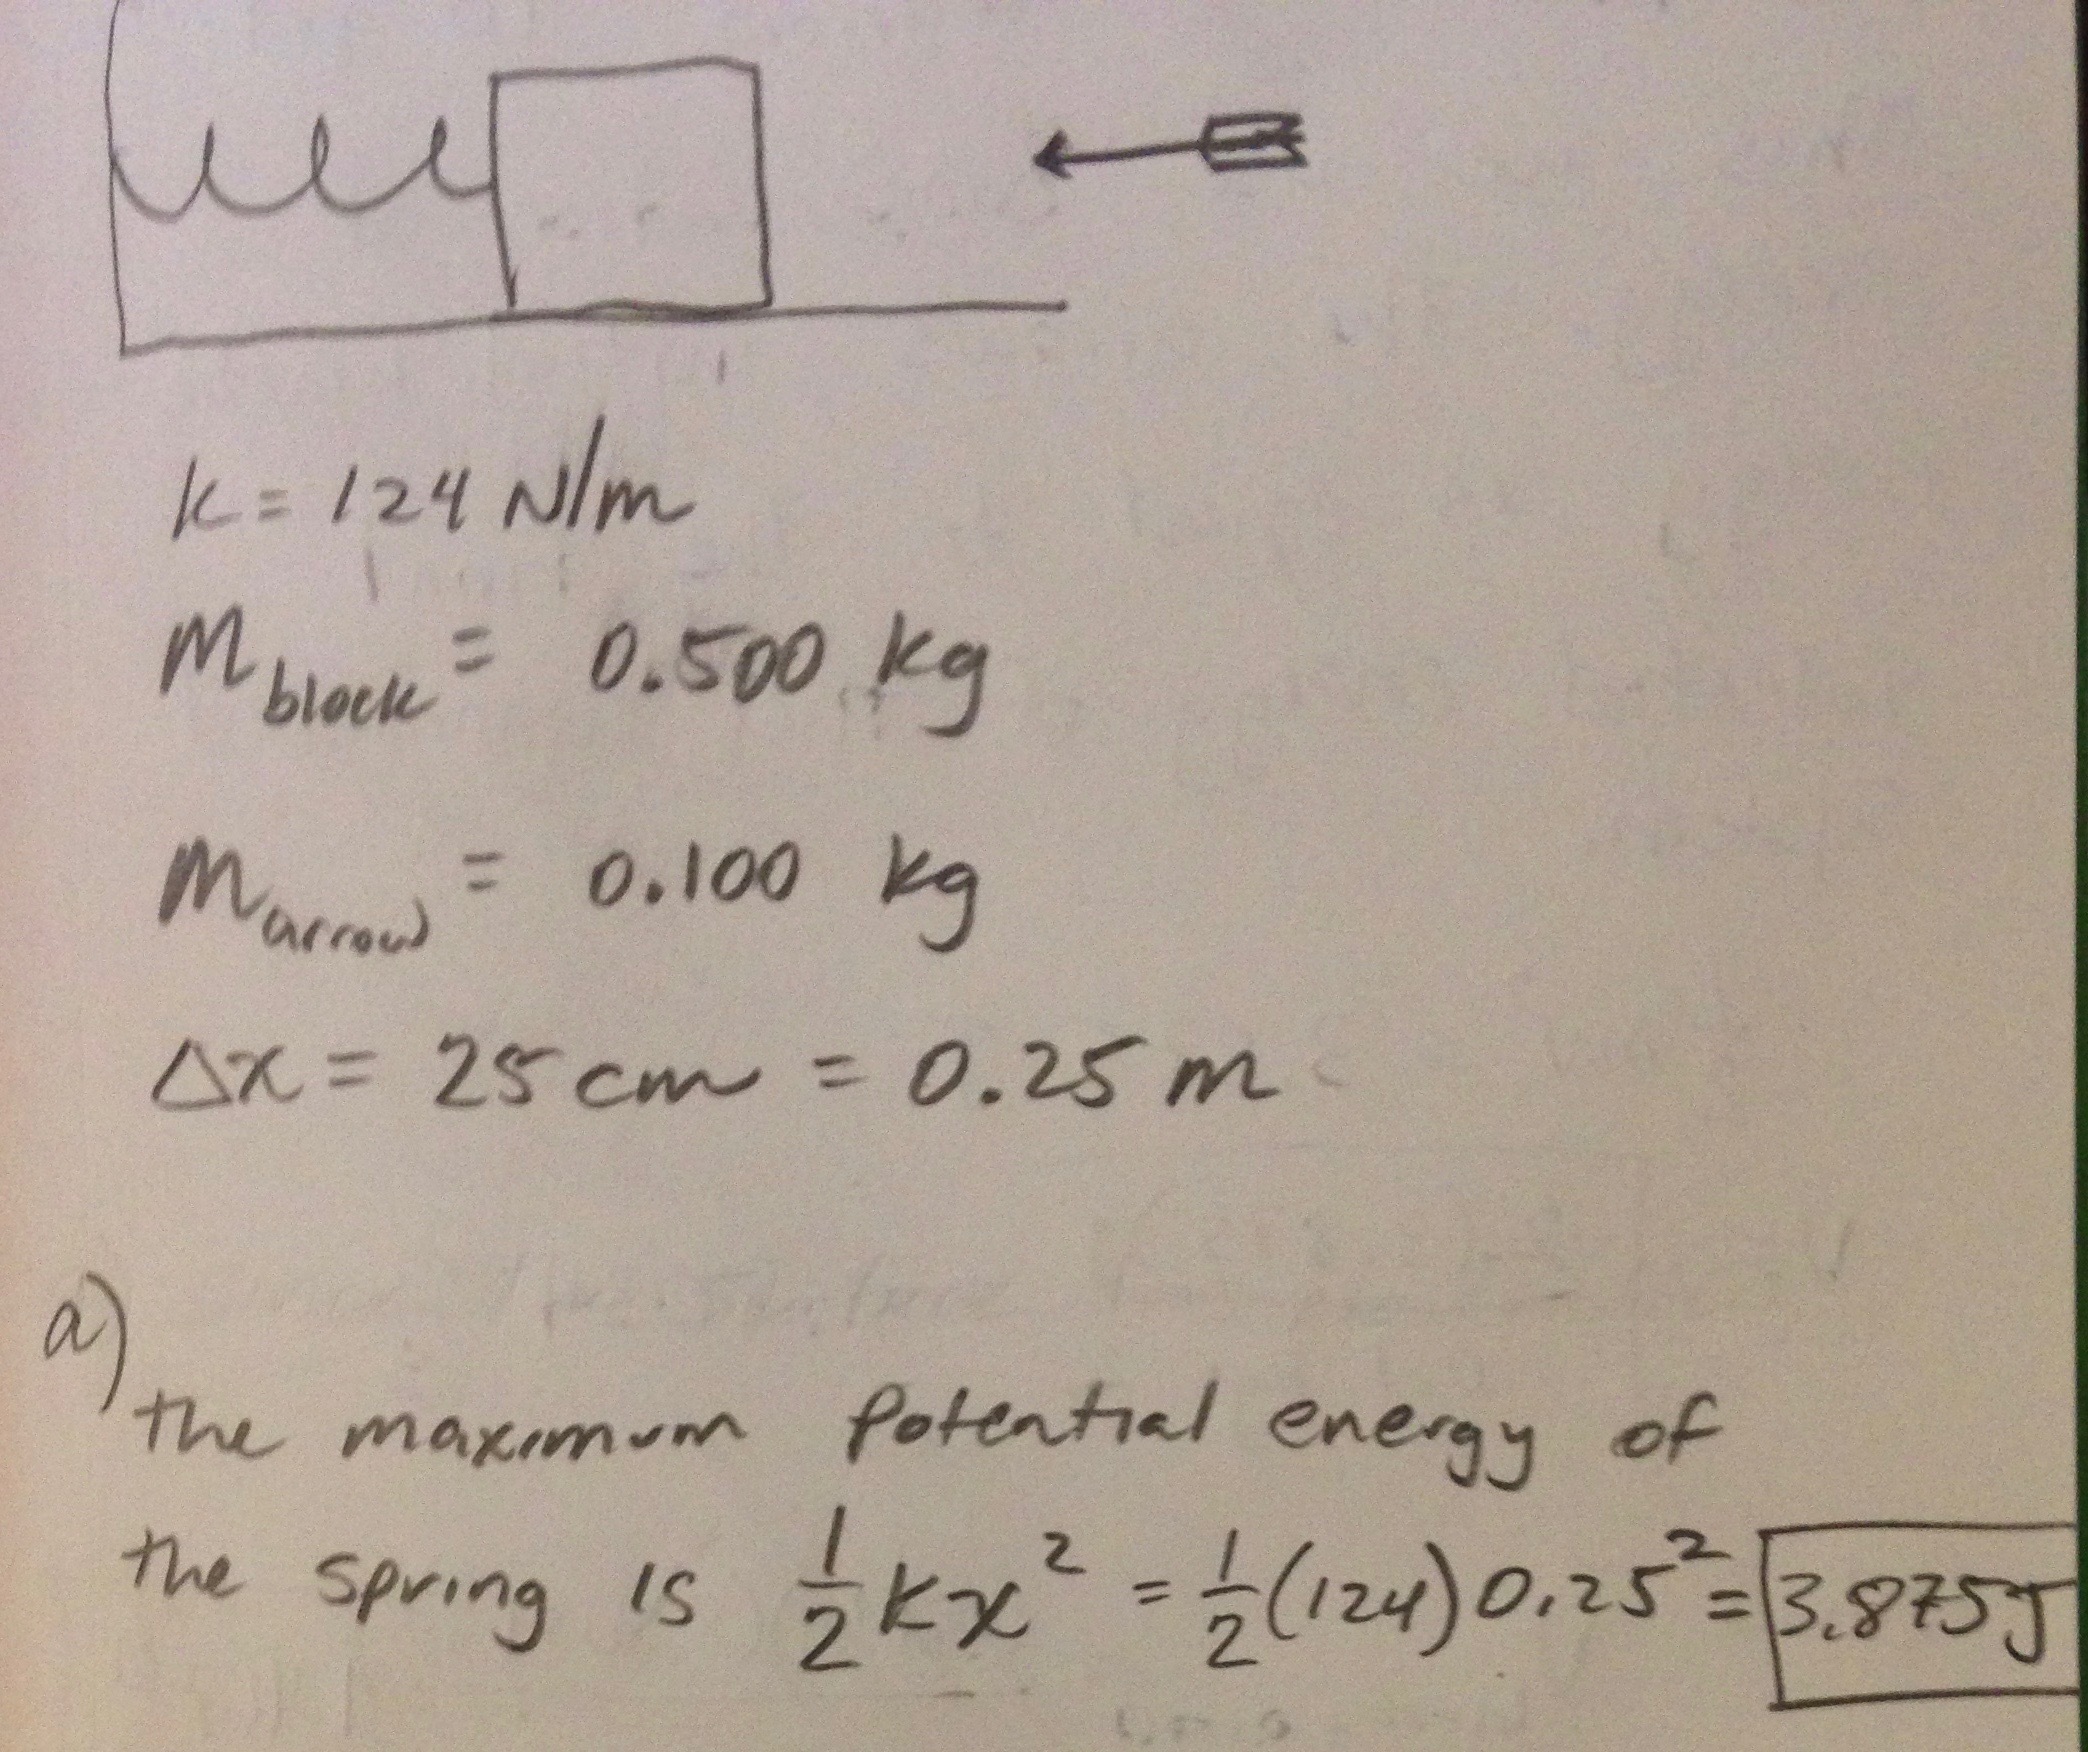 k = 124 N/m
m block = 0.500 kg
m arrow = 0.100 kg
Δx = 25 cm = 0.25 m
a)
the maximum potential energy of
the spring is 1/2 kx² = 1/2 (124) 0.25² = 3.875 J